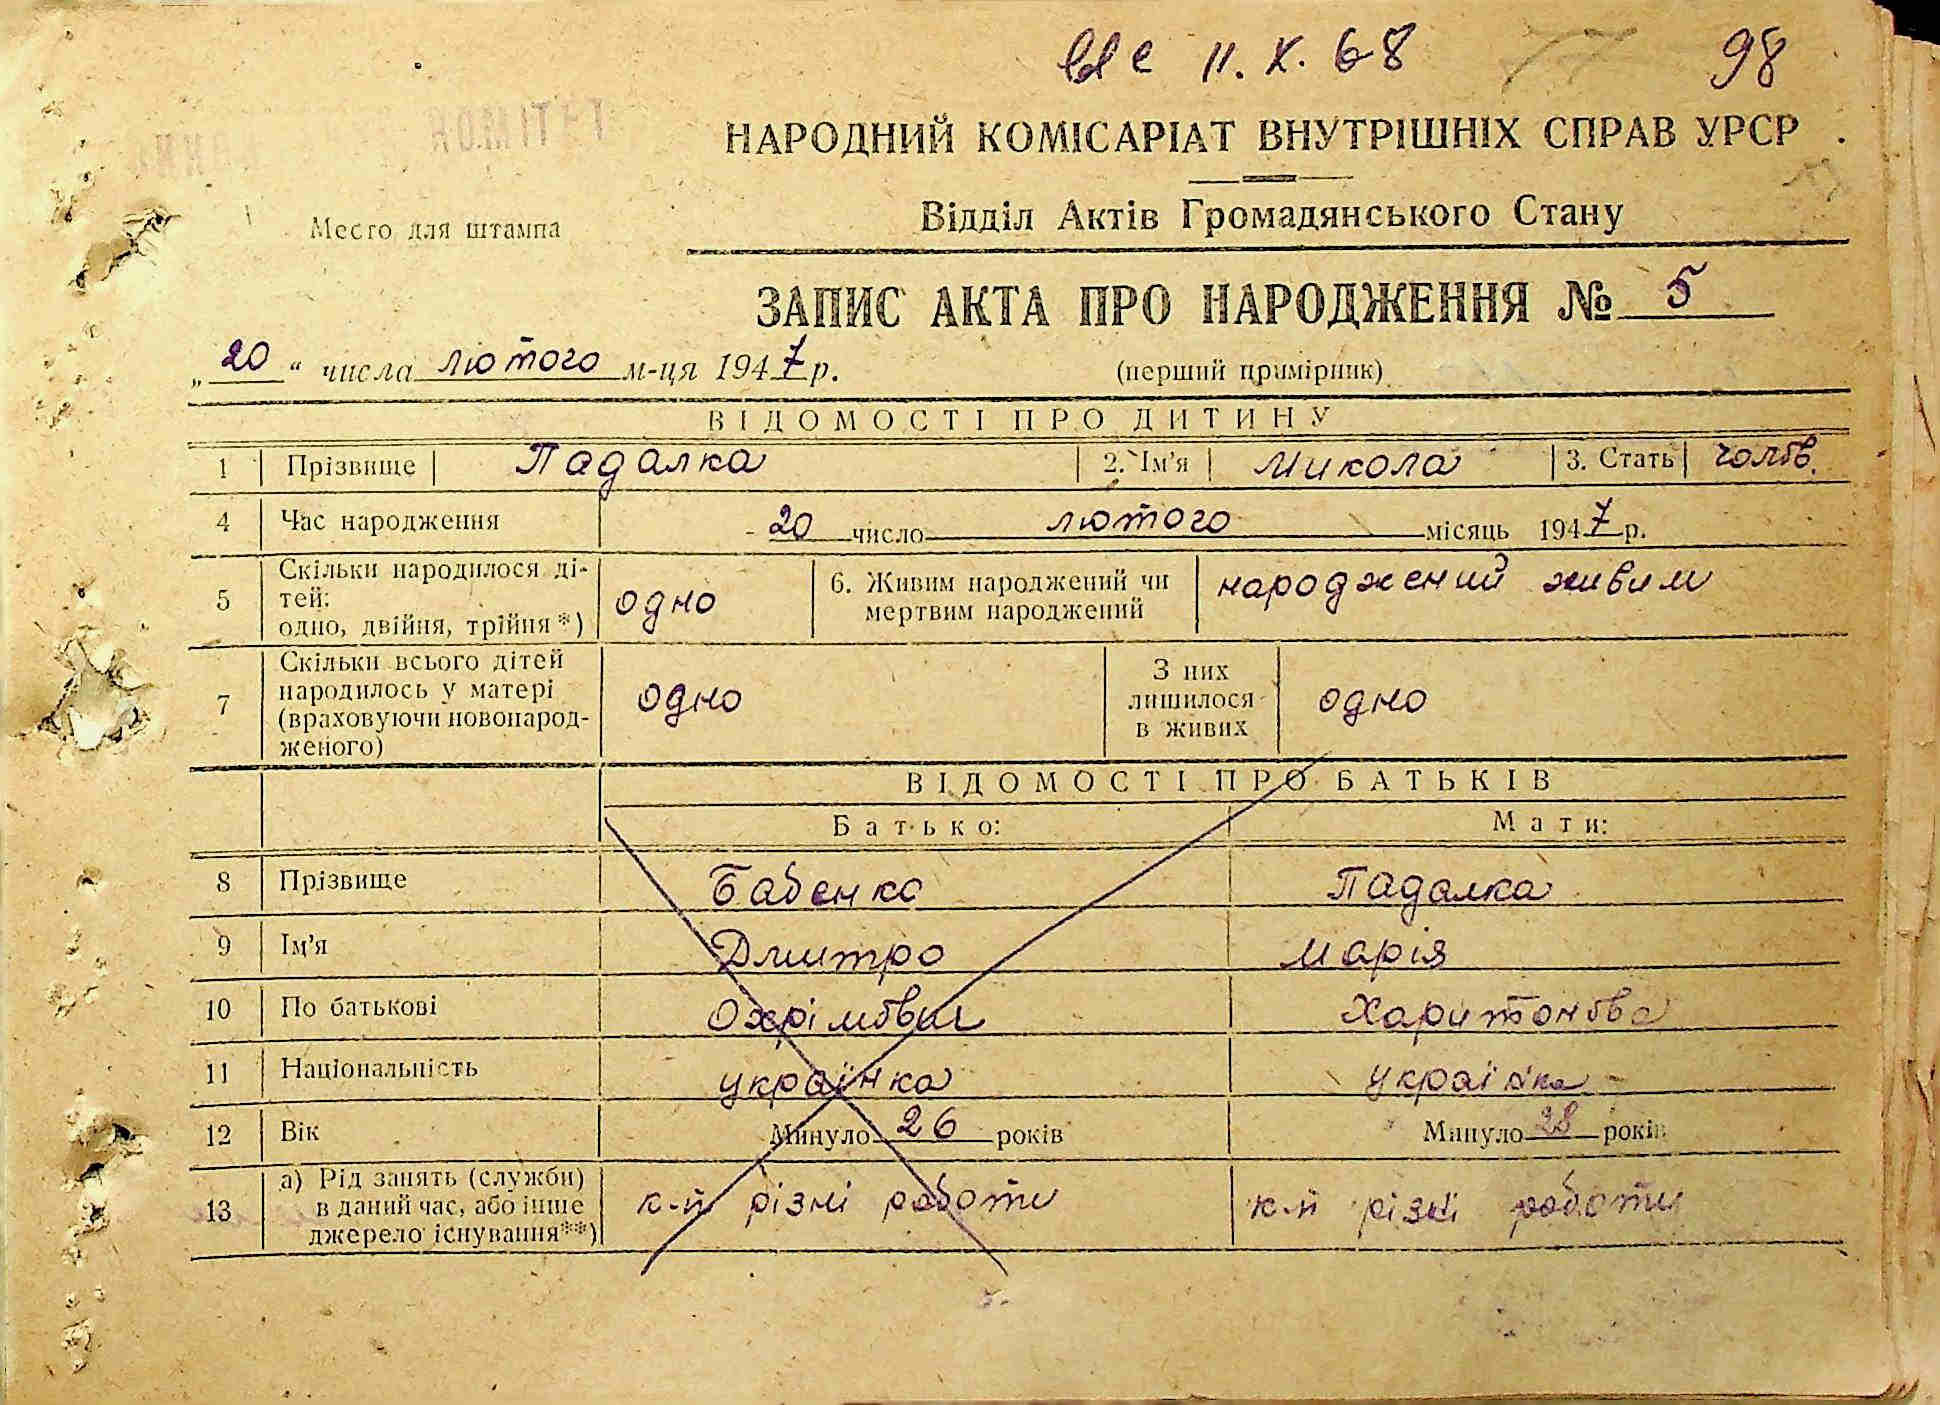 11. X. 68 98
НАРОДНИЙ КОМІСАРІАТ ВНУТРІШНІХ СПРАВ УРСР
Место для штампа
Відділ Актів Громадянського Стану
ЗАПИС АКТА ПРО НАРОДЖЕННЯ № 5
„20“ числа лютого м-ця 1947 р. (перший примірник)
ВІДОМОСТІ ПРО ДИТИНУ
1 Прізвище Падалка 2. Ім'я Микола 3. Стать чолов.
4 Час народження 20 число лютого місяць 1947 р.
5 Скільки народилося ді-
тей:
одно, двійня, трійня *)
одно
6. Живим народжений чи
мертвим народжений
народжений живим
7 Скільки всього дітей
народилось у матері
(враховуючи новонарод-
женого)
одно
З них
лишилося
в живих
одно
ВІДОМОСТІ ПРО БАТЬКІВ
Батько: Мати:
8 Прізвище Бабенко Падалка
9 Ім'я Дмитро Марія
10 По батькові Охрімович Харитонова
11 Національність українка українка
12 Вік Минуло 26 років Минуло 28 років
13 а) Рід занять (служби)
в даний час, або інше
джерело існування**)
к-п різні роботи к-п різні роботи